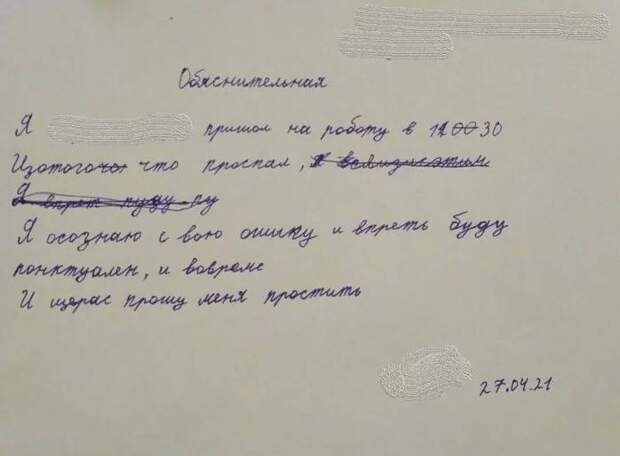 Обяснительная
Я пришол на роботу в 110030
Изотогочо что проспал, я всвязисэтим
Я впрет пуду пу
Я осознаю с вою ошыку и впреть буду
понктуален, и вовреме
И щорас прошу меня простить
27.04.21